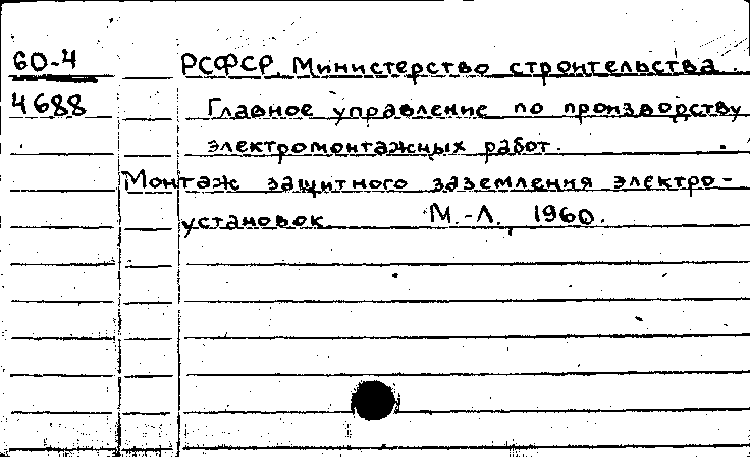 60-4 РСФСР. Министерство строительства.
4688 Главное управление по производству
электромонтажных работ.
Монтаж защитного заземления электро-
установок М.-Л. 1960.